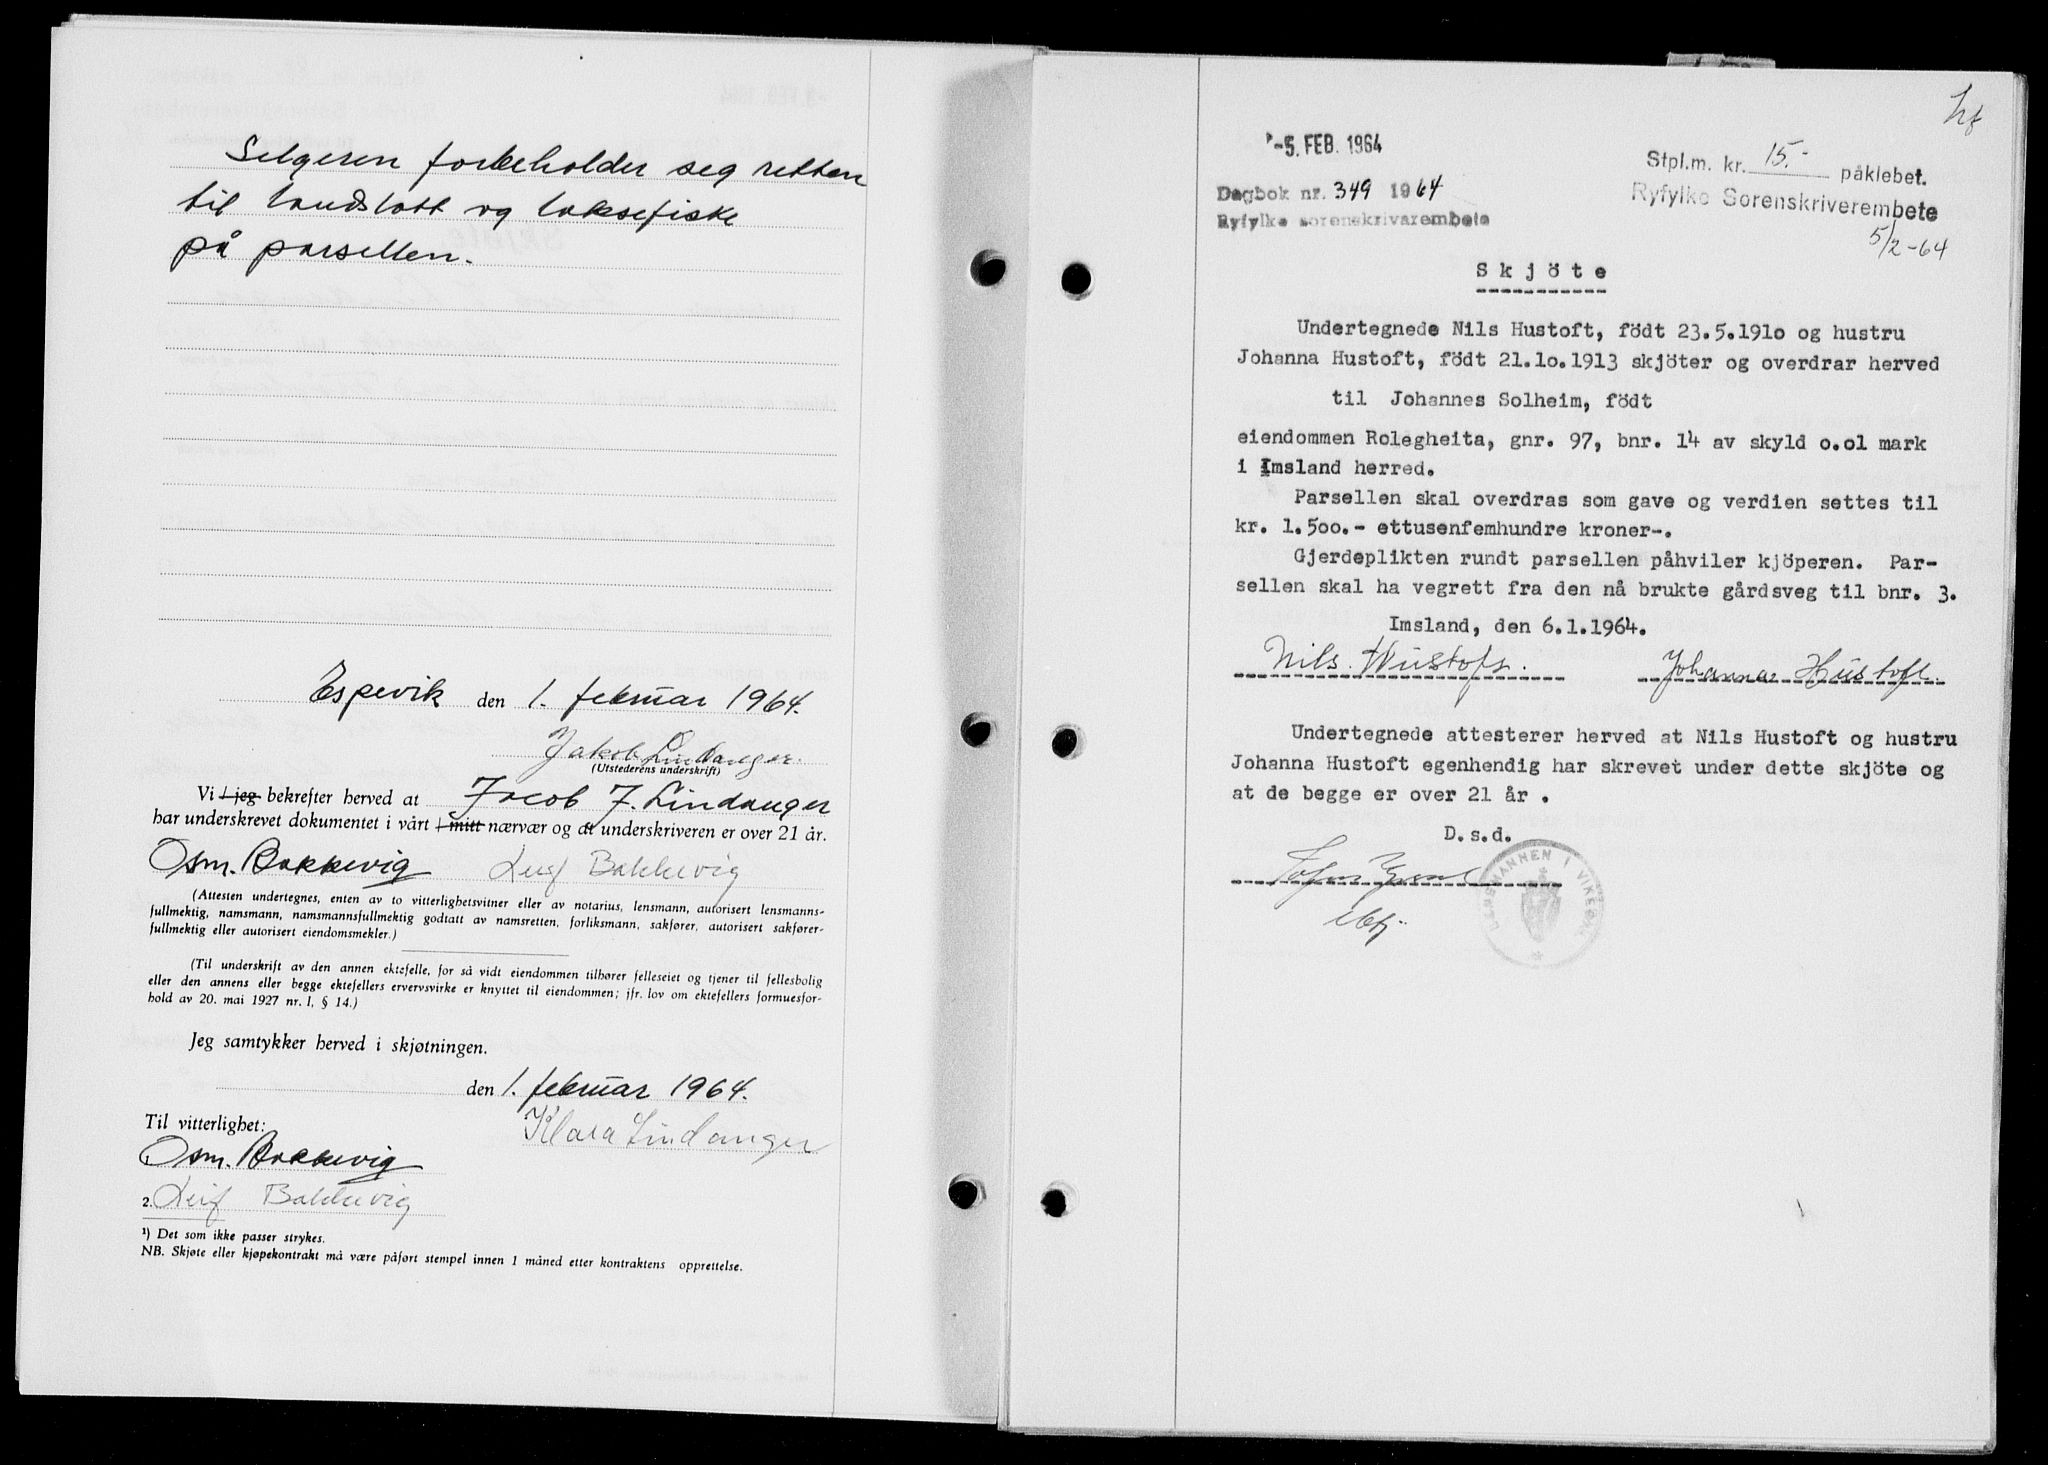 Selgeren forbeholder seg retten
til landslått og laksefiske
på parsellen.
Espevik den 1. februar 1964.
Jakob Lindanger.
(Utstederens underskrift)
Vi / jeg bekrefter herved at Jacob J. Lindanger
har underskrevet dokumentet i vårt / mitt nærvær og at underskriveren er over 21 år.
Osm. Bakkevig Leif Bakkevig
(Attesten undertegnes, enten av to vitterlighetsvitner eller av notarius, lensmann, autorisert lensmanns-
fullmektig, namsmann, namsmannsfullmektig godtatt av namsretten, forliksmann, sakfører, autorisert sakfører-
fullmektig eller autorisert eiendomsmekler.)
(Til underskrift av den annen ektefelle, for så vidt eiendommen tilhører felleseiet og tjener til fellesbolig
eller den annens eller begge ektefellers ervervsvirke er knyttet til eiendommen; jfr. lov om ektefellers formuesfor-
hold av 20. mai 1927 nr. 1, § 14.)
Jeg samtykker herved i skjøtningen.
den 1. februar 1964.
Klara Lindanger
Til vitterlighet:
Osm. Bakkevig
2. Leif Bakkevig
¹) Det som ikke passer strykes.
NB. Skjøte eller kjøpekontrakt må være påført stempel innen 1 måned etter kontraktens opprettelse.
-5. FEB. 1964
Dagbok nr. 349 1964
Ryfylke sorenskrivarembete
Stpl.m. kr. 15.- påklebet.
Ryfylke Sorenskriverembete
5/2-64
Skjöte
Undertegnede Nils Hustoft, födt 23.5.1910 og hustru
Johanna Hustoft, födt 21.10.1913 skjöter og overdrar herved
til Johannes Solheim, födt
eiendommen Rolegheita, gnr. 97, bnr. 14 av skyld 0.01 mark
i Imsland herred.
Parsellen skal overdras som gave og verdien settes til
kr. 1.500.- ettusenfemhundre kroner-.
Gjerdeplikten rundt parsellen påhviler kjöperen. Par-
sellen skal ha vegrett fra den nå brukte gårdsveg til bnr. 3.
Imsland, den 6.1.1964.
Nils Hustoft. Johanna Hustoft.
Undertegnede attesterer herved at Nils Hustoft og hustru
Johanna Hustoft egenhendig har skrevet under dette skjöte og
at de begge er over 21 år .
D.s.d.
LENSMANNEN I VIKEDAL